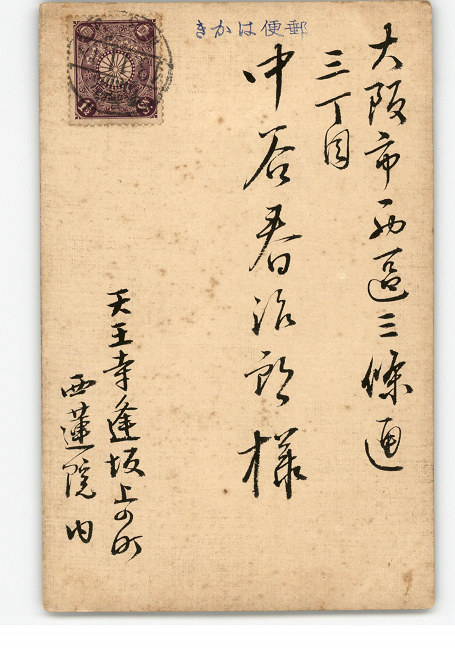 郵便はかき
大阪市西區三條通
三丁目
中谷春治郎様
天王寺逢坂上の町
西蓮院内
1½ Sn